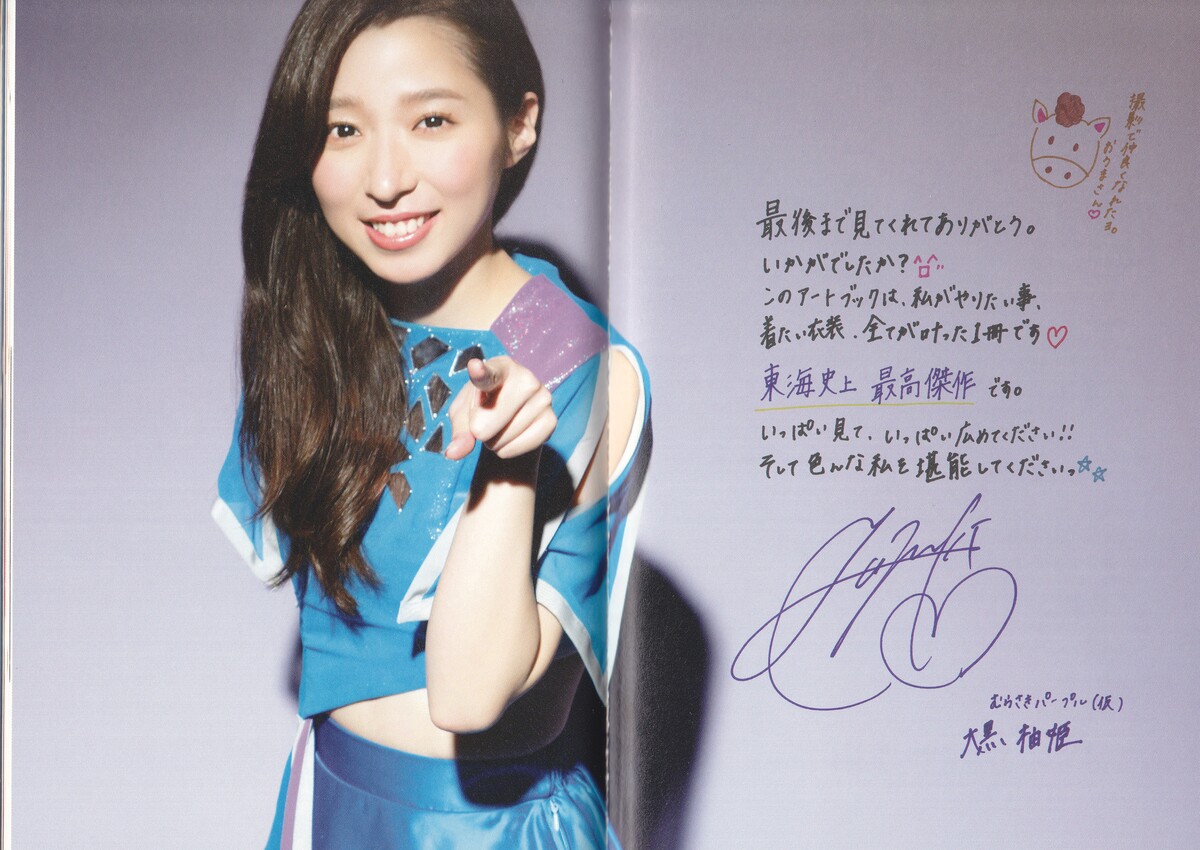 撮影で仲良くなれたヨ。
おウまさん♡
最後まで見てくれてありがとう。
いかがでしたか?
このアートブックは、私がやりたい事、
着たい衣装、全てが叶った1冊です♡
東海史上 最高傑作 です。
いっぱい見て、いっぱい広めてください!!
そして色んな私を堪能してくださいっ☆☆
Yuzuki
むらさきパープル(仮)
大黒 柚姫